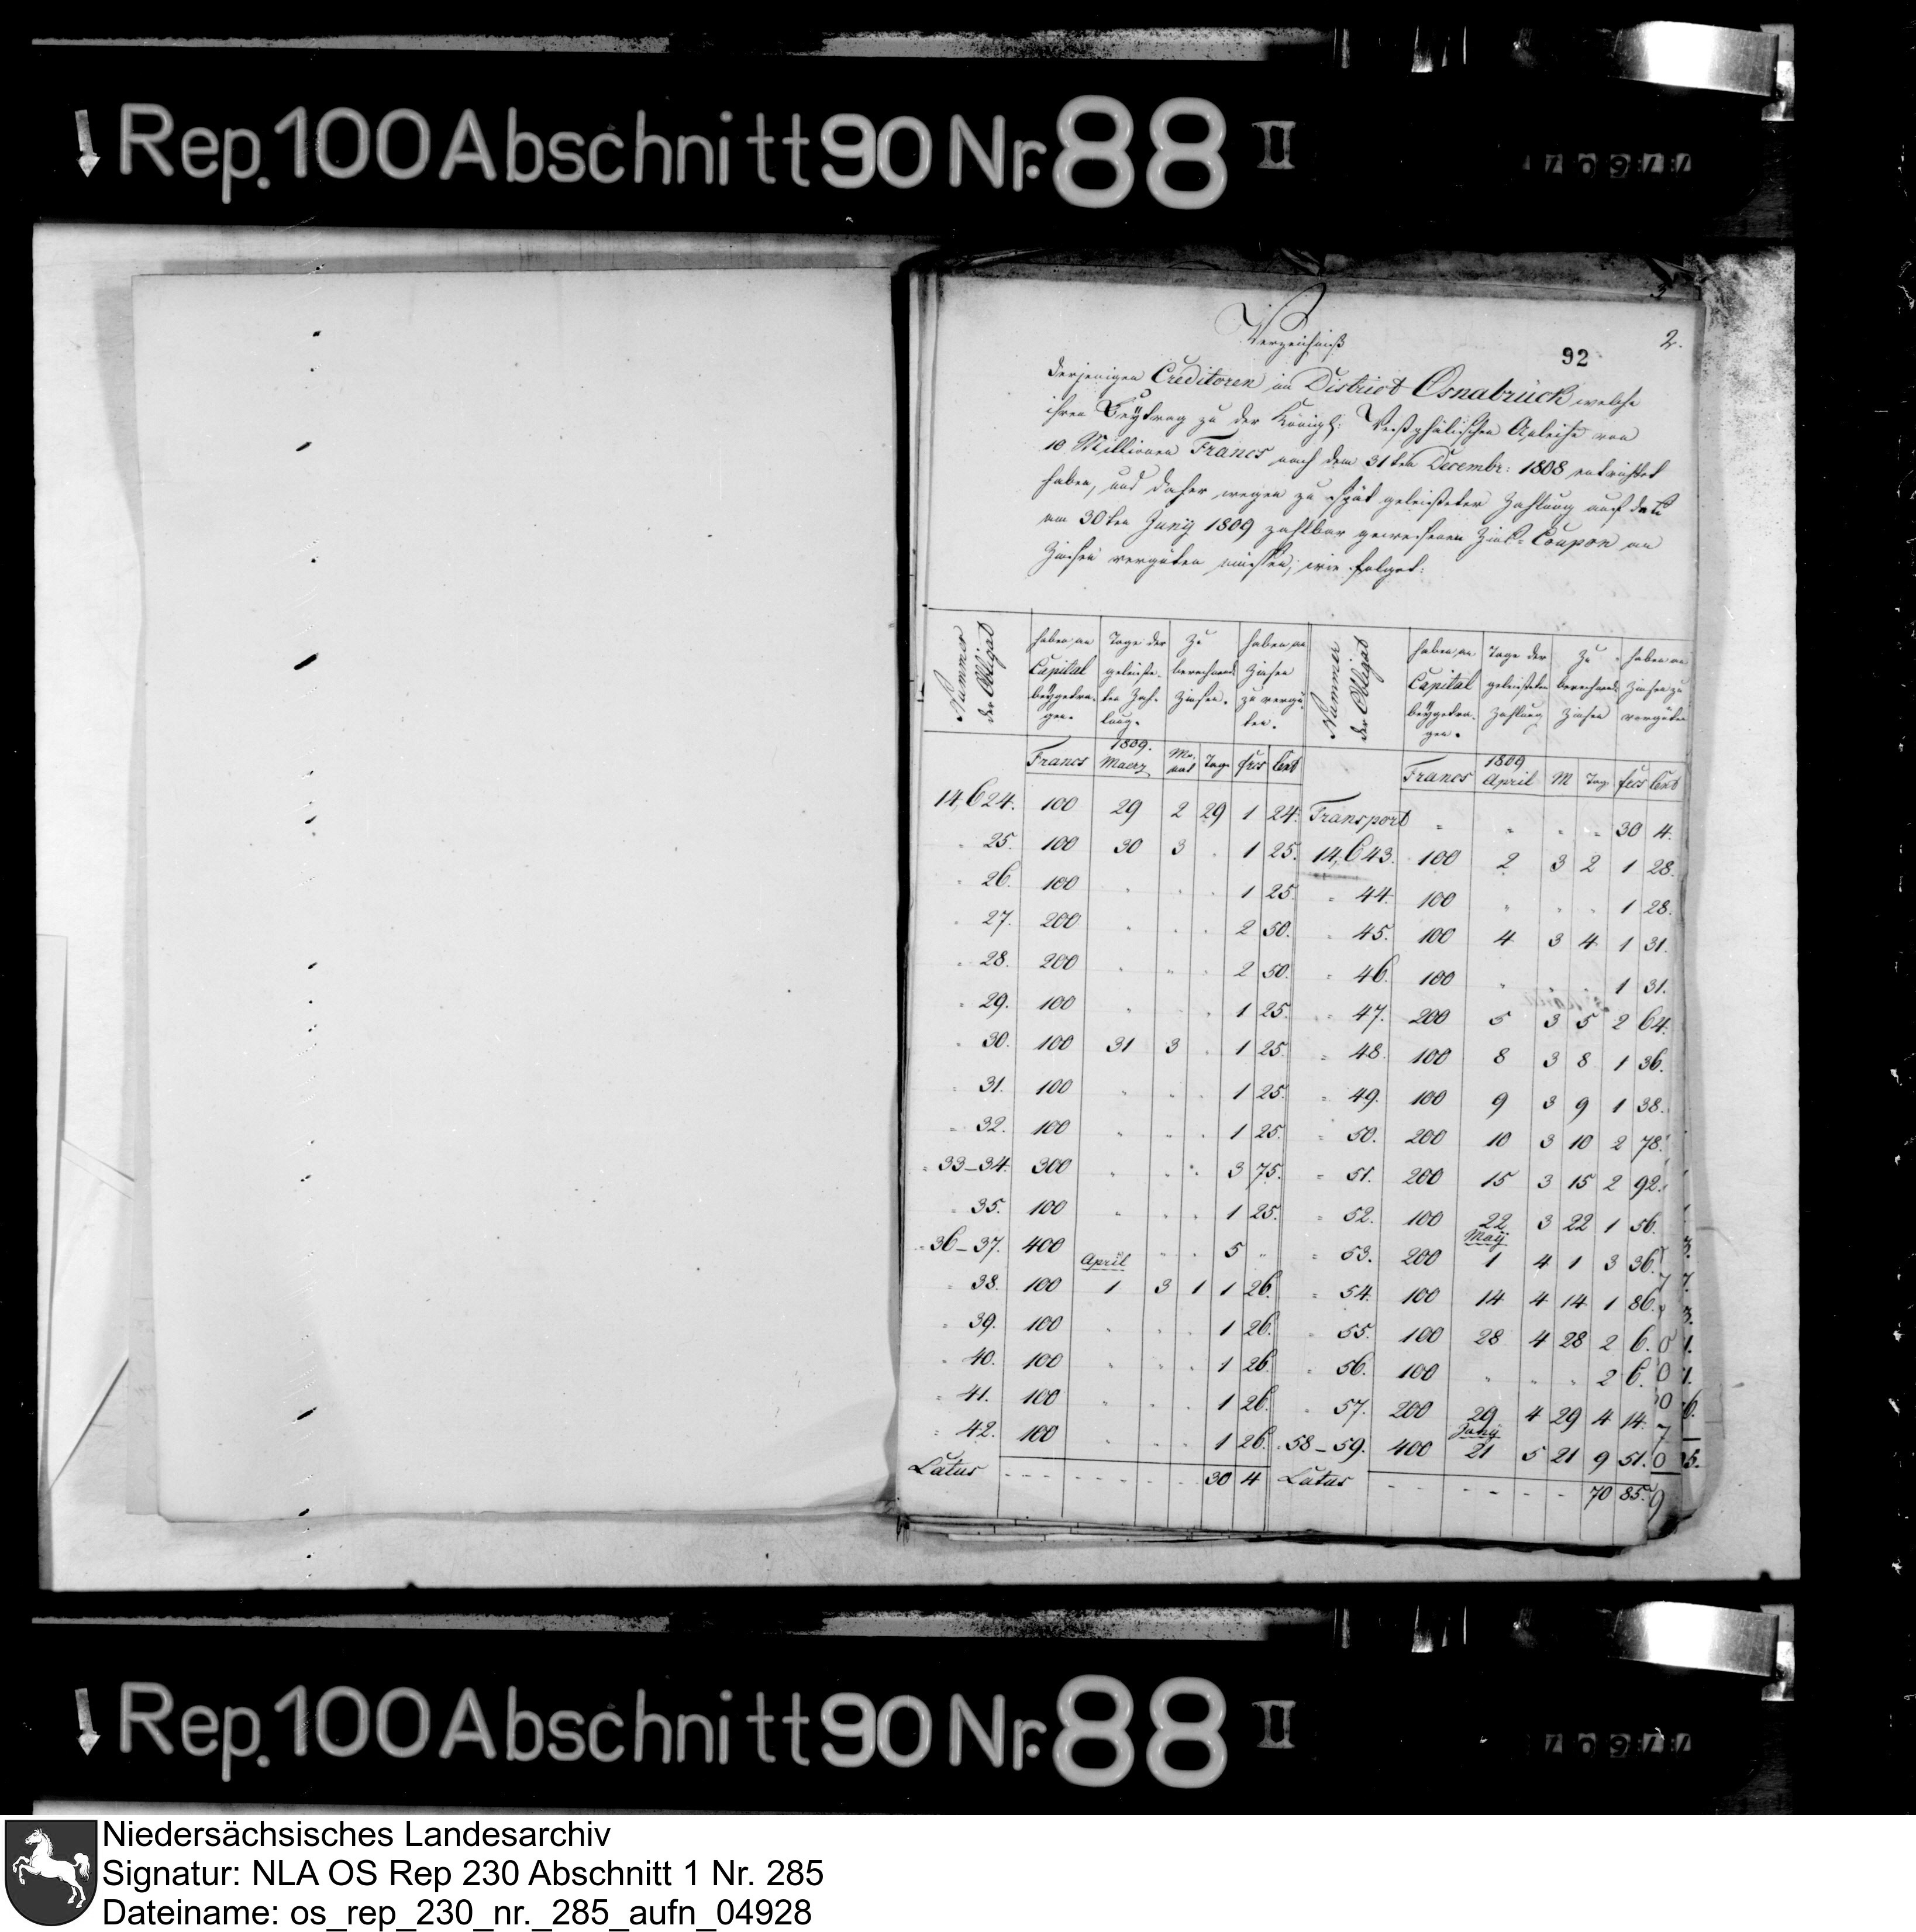 Rep. 100 Abschnitt 90 Nr. 88 II
2.
92
Verzeichniß
derjenigen Creditoren im District Osnabrück welche
ihren Beytrag zu der Königl: Westphälischen Anleihe von
10 Millionen Francs nach dem 31ten Decembr: 1808 entrichtet
haben, und daher wegen zu spät geleisteter Zahlung auf den
am 30ten Juny 1809 zahlbar gewesenen Zins-Coupon an
Zinsen vergüten müssen, wie folget:
Nummer der Obligat | haben an Capital beygetragen. | Tage der geleisteten Zahlung. | Zu berechnende Zinsen. | haben an Zinsen zu vergüten.
Francs | 1809. Maerz | Monat | Tage | frcs | Cent
14,624. 100 29 2 29 1 24.
" 25. 100 30 3 . 1 25.
" 26. 100 " " " 1 25.
" 27. 200 " " " 2 50.
" 28. 200 " " " 2 50.
" 29. 100 " " " 1 25.
" 30. 100 31 3 . 1 25
" 31. 100 " " " 1 25.
" 32. 100 " " " 1 25.
" 33–34. 300 " " " 3 75.
" 35. 100 " " " 1 25.
" 36–37. 400 " " " 5 "
April
" 38. 100 1 3 1 1 26.
" 39. 100 " " " 1 26.
" 40. 100 " " " 1 26.
" 41. 100 " " " 1 26.
" 42. 100 " " " 1 26.
Latus 30 4
Nummer der Obligat | haben an Capital beygetragen. | Tage der geleisteten Zahlung | Zu berechnende Zinsen | haben an Zinsen zu vergüten
Francs | 1809 April | M | Tag. | frcs | Cent
Transport " " " " 30 4.
14,643. 100 2 3 2 1 28.
" 44. 100 " " " 1 28.
" 45. 100 4 3 4 1 31.
" 46. 100 " 1 31.
" 47. 200 5 3 5 2 64.
" 48. 100 8 3 8 1 36.
" 49. 100 9 3 9 1 38.
" 50. 200 10 3 10 2 78.
" 51. 200 15 3 15 2 92.
" 52. 100 22 3 22 1 56.
May
" 53. 200 1 4 1 3 36.
" 54. 100 14 4 14 1 86.
" 55. 100 28 4 28 2 6.
" 56. 100 " " " 2 6.
" 57. 200 29 4 29 4 14.
Juny
" 58–59. 400 21 5 21 9 51.
Latus 70 85.
Rep. 100 Abschnitt 90 Nr. 88 II
Niedersächsisches Landesarchiv
Signatur: NLA OS Rep 230 Abschnitt 1 Nr. 285
Dateiname: os_rep_230_nr._285_aufn_04928